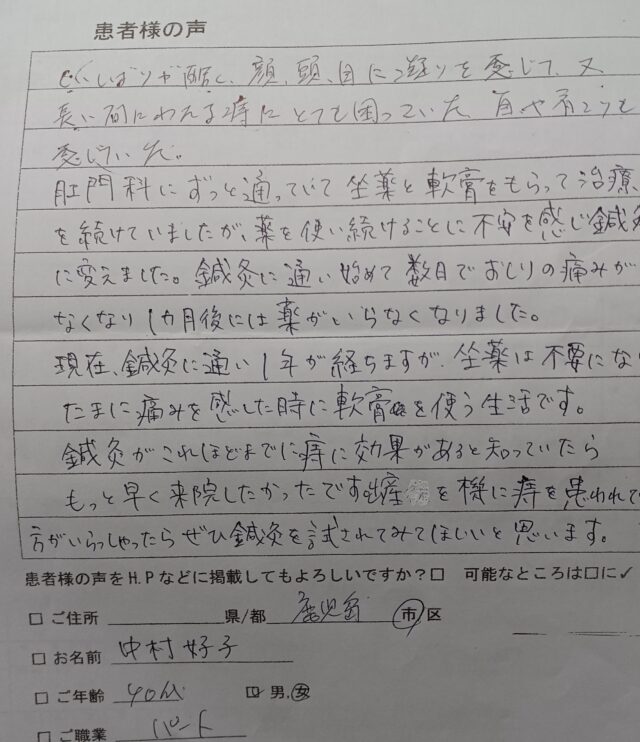 患者様の声
くいしばりが酷く、顔、頭、目に凝りを感じて、又
長い間にわたる痔にとても困っていた
感じていた。
肛門科にずっと通っていて 坐薬と軟膏をもらって治療
を続けていましたが、薬を使い続けることに不安を感じ鍼灸
に変えました。鍼灸に通い始めて数日でおしりの痛みが
なくなり1カ月後には薬がいらなくなりました。
現在、鍼灸に通い1年が経ちますが、坐薬は不要にな
たまに痛みを感じた時に軟膏を使う生活です。
鍼灸がこれほどまでに痔に効果があると知っていたら
もっと早く来院したかったです。を機に痔を患われて
方がいらっしゃったらぜひ鍼灸を試されてみてほしいと思います。
患者様の声をH.Pなどに掲載してもよろしいですか?□ 可能なところは□に✓
□ ご住所 県/都 鹿児島 市区
□ お名前 中村好子
□ ご年齢 40代 ☑ 男.女
□ ご職業 パート